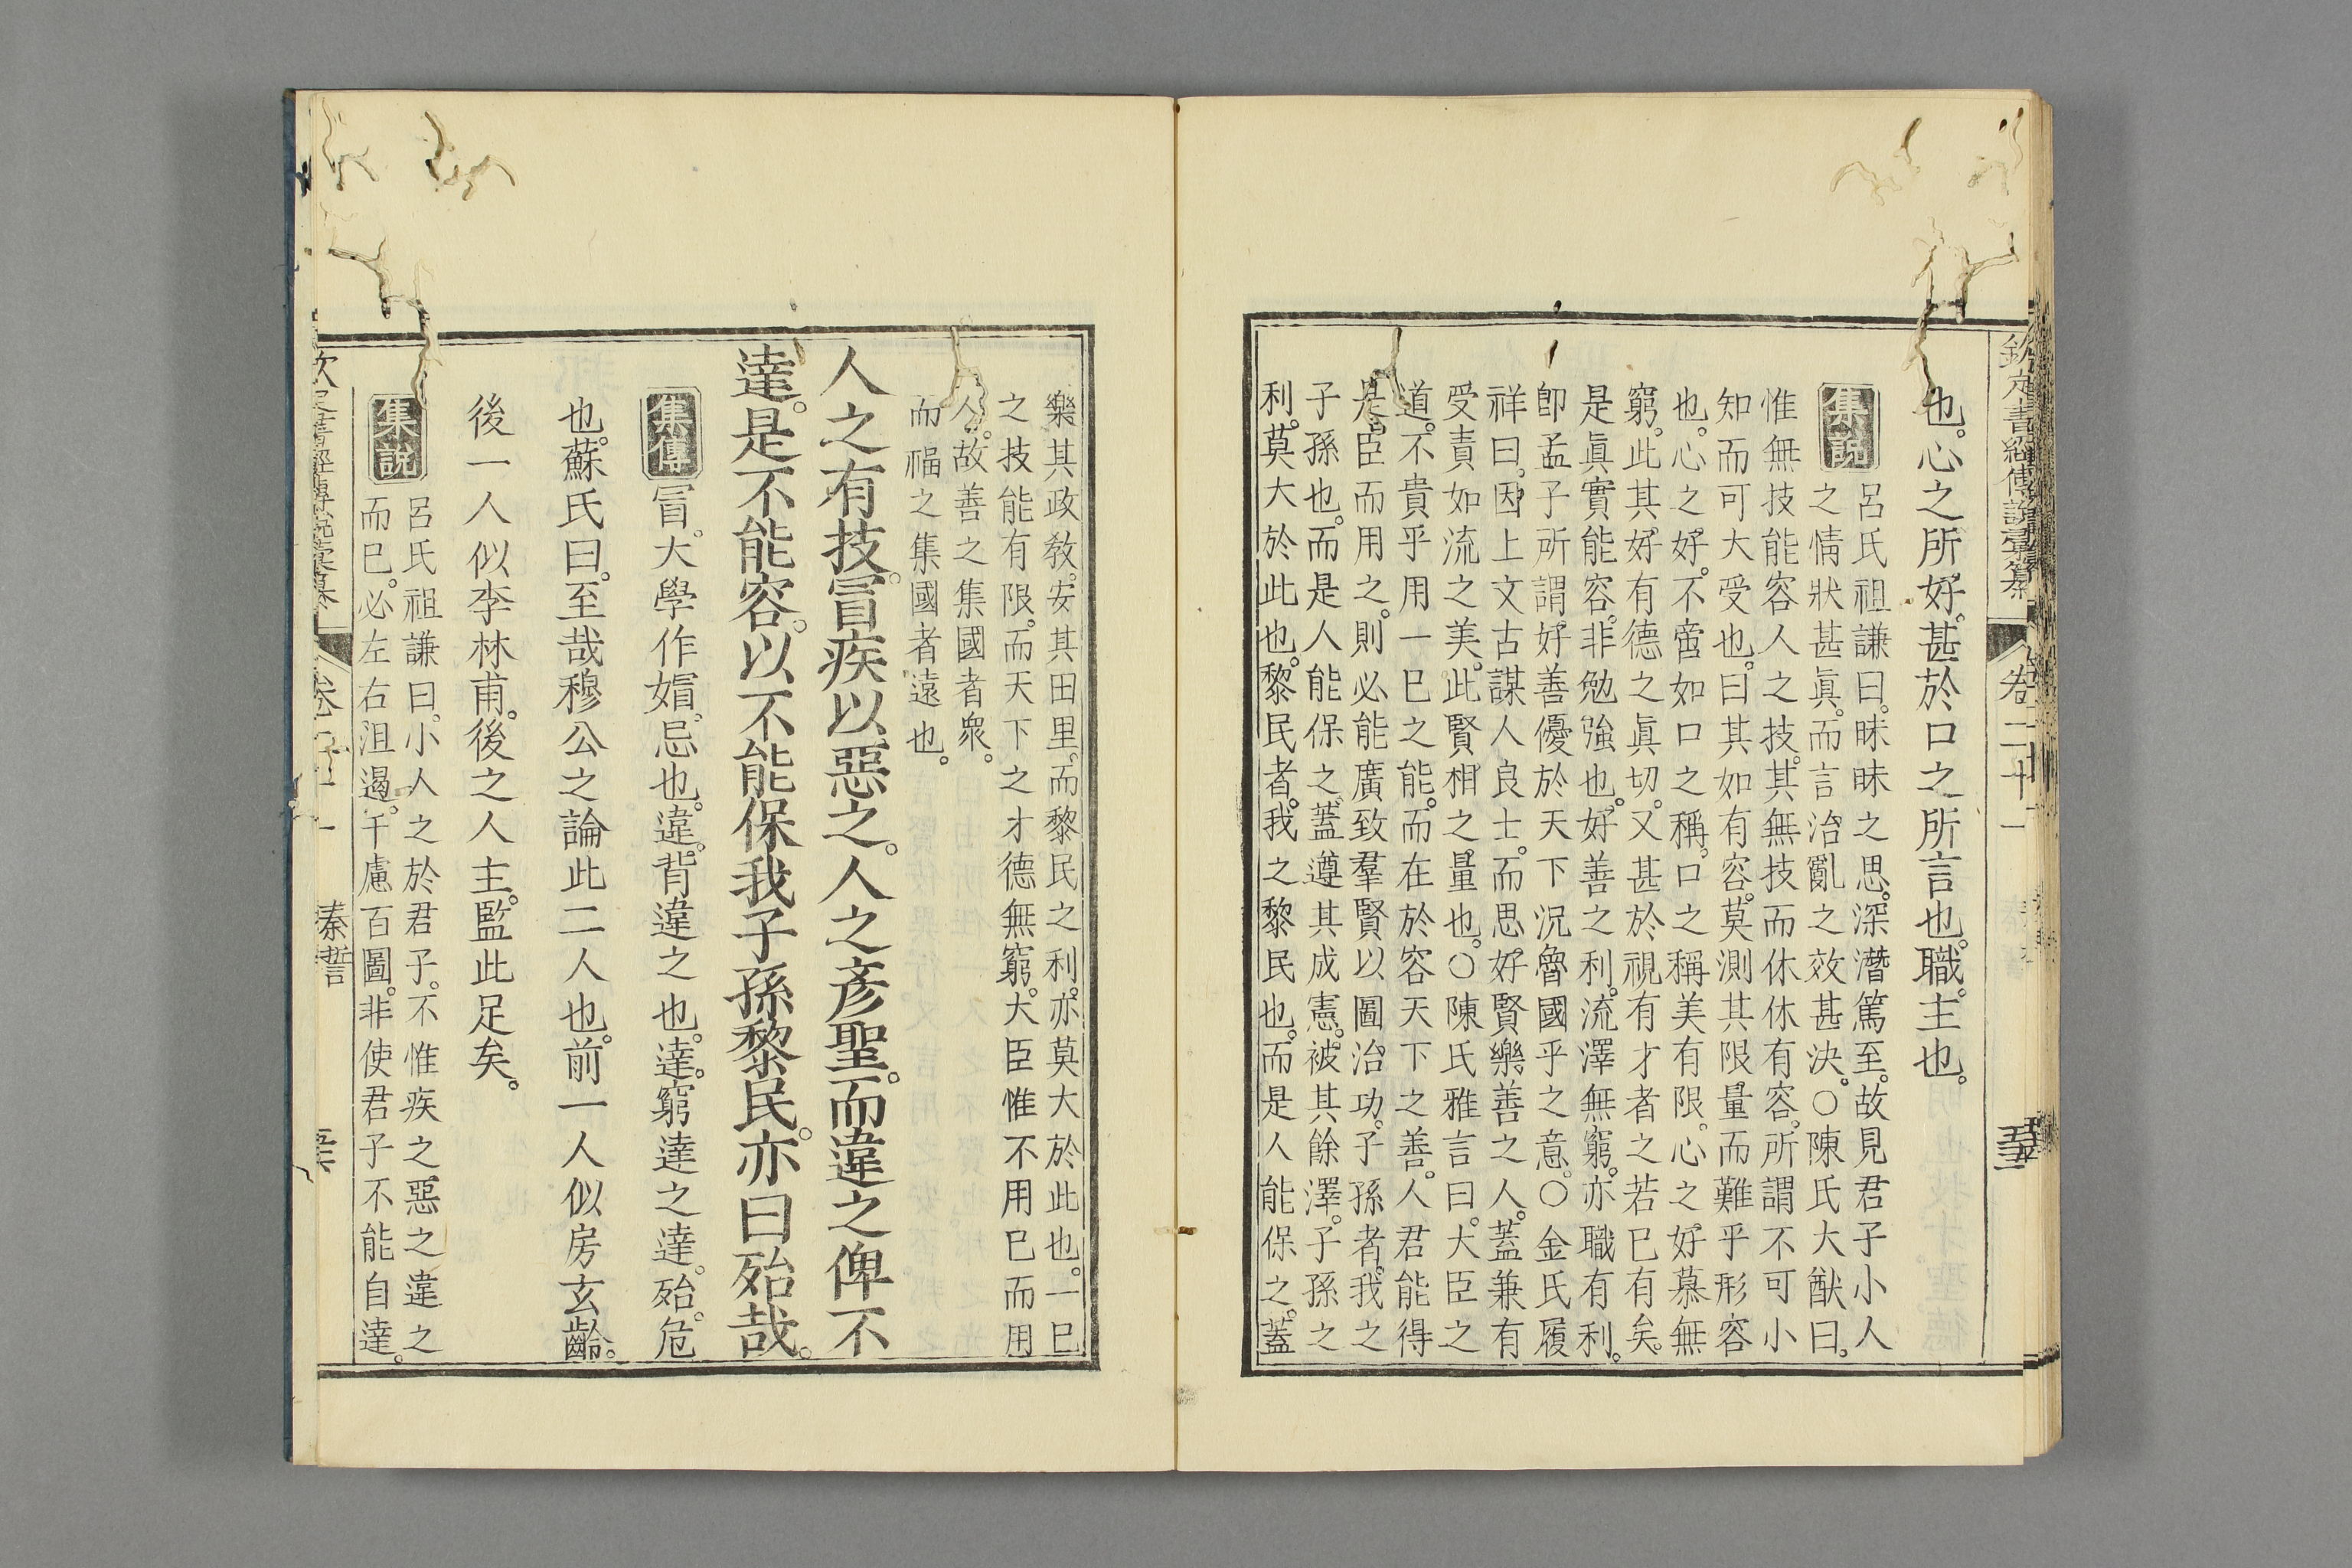 欽定書經傳說彙纂 卷二十一
也。心之所好。甚於口之所言也。職。主也。
集說
呂氏祖謙曰。昧昧之思。深潛篤至。故見君子小人
之情狀甚眞。而言治亂之效甚決。○陳氏大猷曰。
惟無技能容人之技。其無技而休休有容。所謂不可小
知而可大受也。曰其如有容。莫測其限量而難乎形容
也。心之好。不啻如口之稱。口之稱美有限。心之好慕無
窮。此其好有德之眞切。又甚於視有才者之若已有矣。
是眞實能容。非勉強也。好善之利。流澤無窮。亦職有利。
卽孟子所謂。好善優於天下況魯國乎之意。○金氏履
祥曰。因上文古謀人良士。而思好賢樂善之人。蓋兼有
受責如流之美。此賢相之量也。○陳氏雅言曰。大臣之
道。不貴乎用一已之能。而在於容天下之善。人君能得
是臣而用之。則必能廣致羣賢以圖治功。子孫者。我之
子孫也。而是人能保之。蓋遵其成憲。被其餘澤。子孫之
利。莫大於此也。黎民者。我之黎民也。而是人能保之。蓋
樂其政敎。安其田里。而黎民之利。亦莫大於此也。一已
之技能有限。而天下之才德無窮。大臣惟不用已而用
人。故善之集國者衆。
而福之集國者遠也。
人之有技。冒疾以惡之。人之彥聖。而違之俾不
達。是不能容。以不能保我子孫黎民。亦曰殆哉。
集傳
冒。大學作媢。忌也。違。背違之也。達。窮達之達。殆。危
也。蘇氏曰。至哉穆公之論此二人也。前一人似房玄齡。
後一人似李林甫。後之人主。監此足矣。
集說
呂氏祖謙曰。小人之於君子。不惟疾之惡之違之
而已。必左右沮遏。千慮百圖。非使君子不能自達。
秦誓